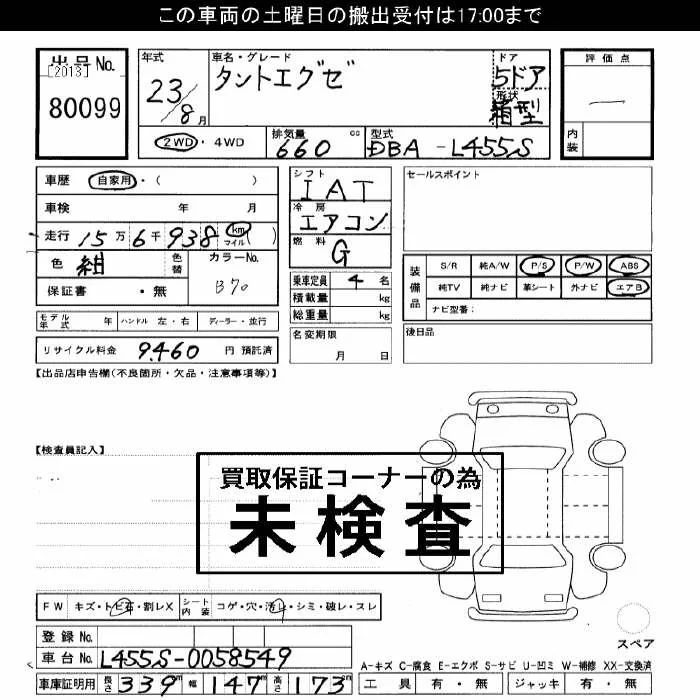 この車両の土曜日の搬出受付は17:00まで
出品No.
[2013]
80099
年式 23/8月
車名・グレード タントエグゼ
ドア 5ドア
形状 箱型
評価点 —
内装
2WD・4WD
排気量 660 cc
型式 DBA-L455S
車歴 自家用・( )
車検 年 月
走行 15万6千938 km マイル ( )
色 紺 色替 カラーNo. B70
保証書 ・無
シフト IAT
冷房 エアコン
燃料 G
乗車定員 4 名
積載量 kg
総重量 kg
名変期限 月 日
セールスポイント
装備品 S/R 純A/W P/S P/W ABS
純TV 純ナビ 革シート 外ナビ エアB
ナビ型番:
後日品
モデル年式 年 ハンドル 左・右 ディーラー・並行
リサイクル料金 9,460 円 預託済
【出品店申告欄(不良箇所・欠品・注意事項等)】
【検査員記入】
買取保証コーナーの為
未検査
FW キズ・トビ石・割レX シート内装 コゲ・穴・汚レ・シミ・破レ・スレ
登録No.
車台No. L455S-0058549
車庫証明用 長さ 339m 幅 147m 高さ 173cm
スペア
A-キズ C-腐食 E-エクボ S-サビ U-凹ミ W-補修 XX-交換済
工具 有・無 ジャッキ 有・無